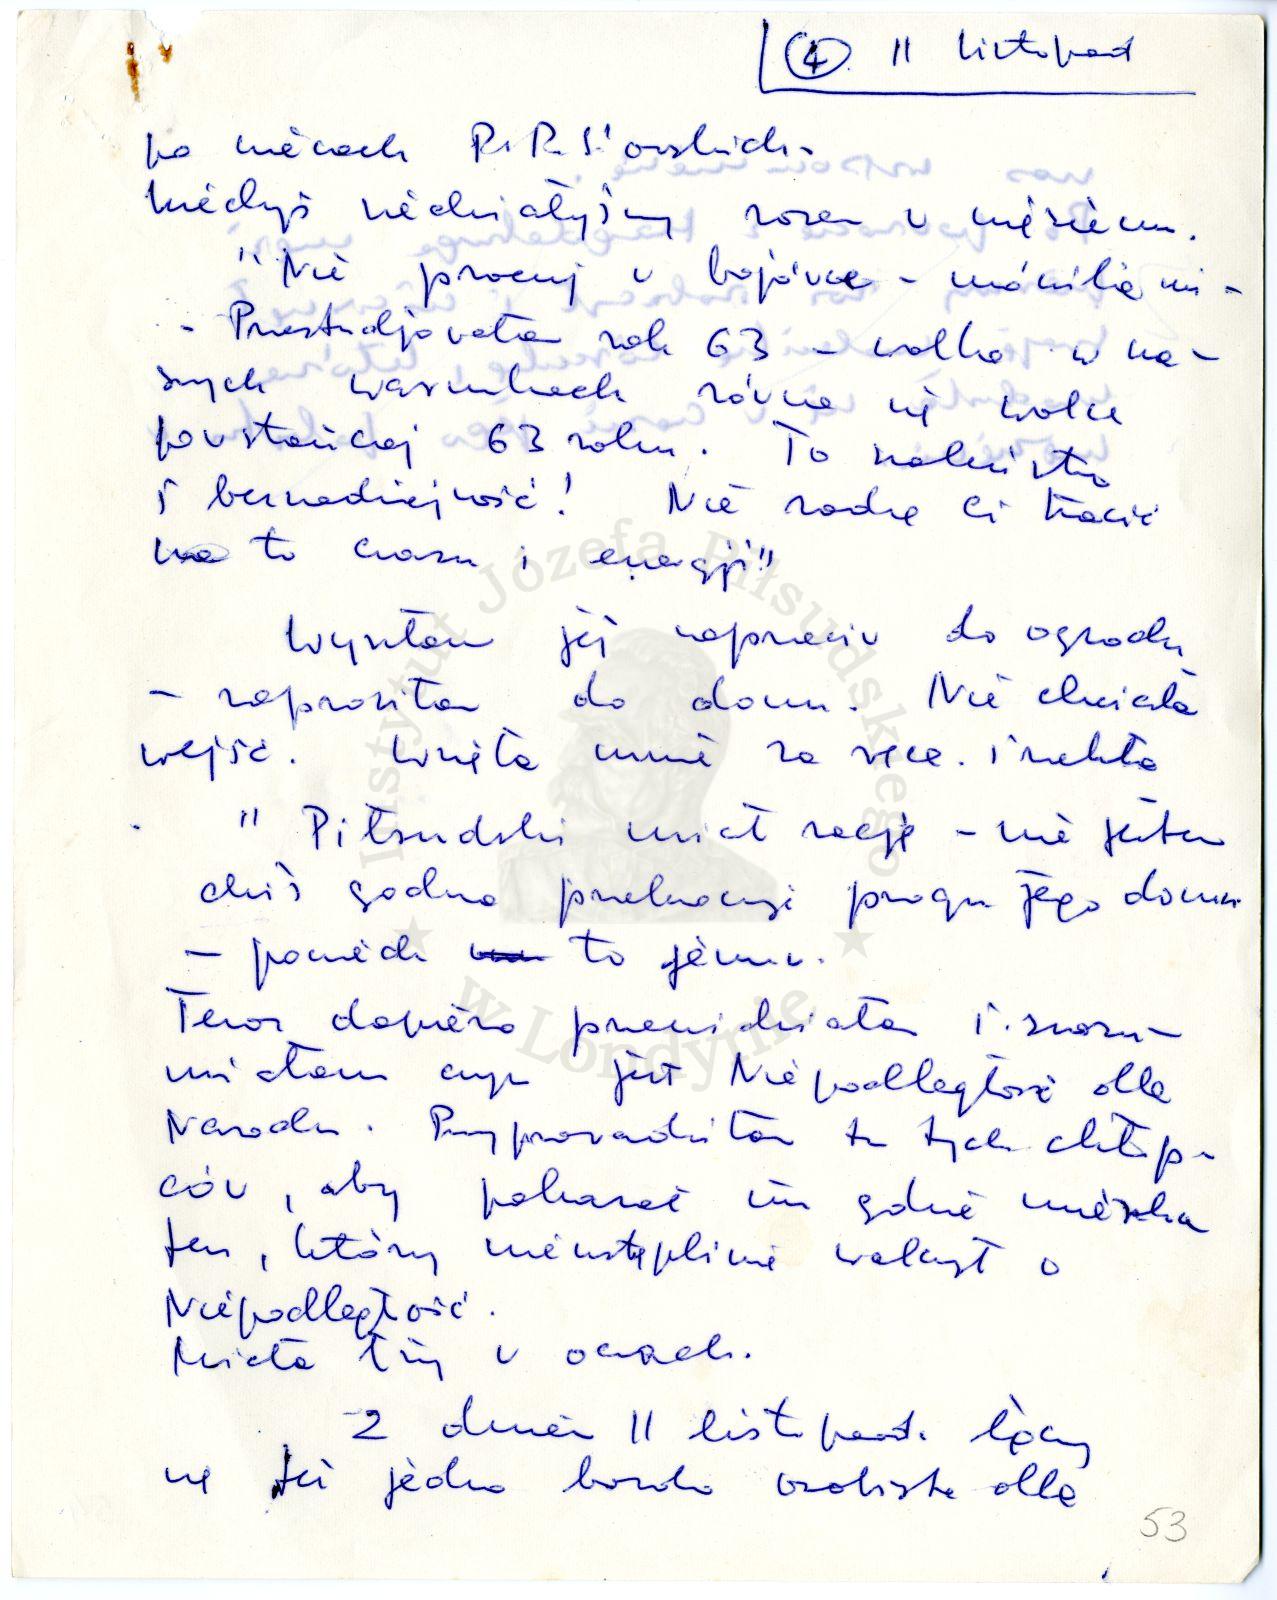 ④ 11 listopad
po wiecach P.P.S'owskich.
Kiedyś siedziałyśmy razem w więzieniu.
"Nie pracuj w bojówce - mówiła mi -
- Przestudjowałam rok 63 - walka w na-
szych warunkach równa się walce
powstańczej 63 roku. To szaleństwo
i beznadziejność! Nie radzę Ci tracić
na to czasu i energji"
Wyszłam jej naprzeciw do ogrodu
- zaprosiłam do domu. Nie chciała
wejść. Wzięła mnie za ręce i rzekła
"Piłsudski miał rację - nie jestem
dziś godna przekroczyć progu jego domu
- powiedz to jemu.
Teraz dopiero przewidziałam i zrozu-
miałam czym jest Niepodległość dla
Narodu. Przyprowadziłam tu tych chłop-
ców, aby pokazać im gdzie mieszka
ten, który nieustępliwie walczył o
Niepodległość.
Miała łzy w oczach.
Z dniem 11 listopada łączy
się też jedno bardzo osobiste dla
53
Instytut Józefa Piłsudskiego
w Londynie